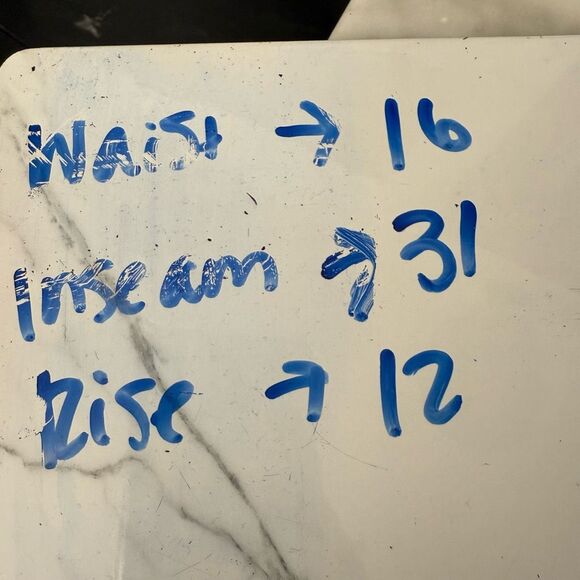 Waist → 16
Inseam → 31
Rise → 12